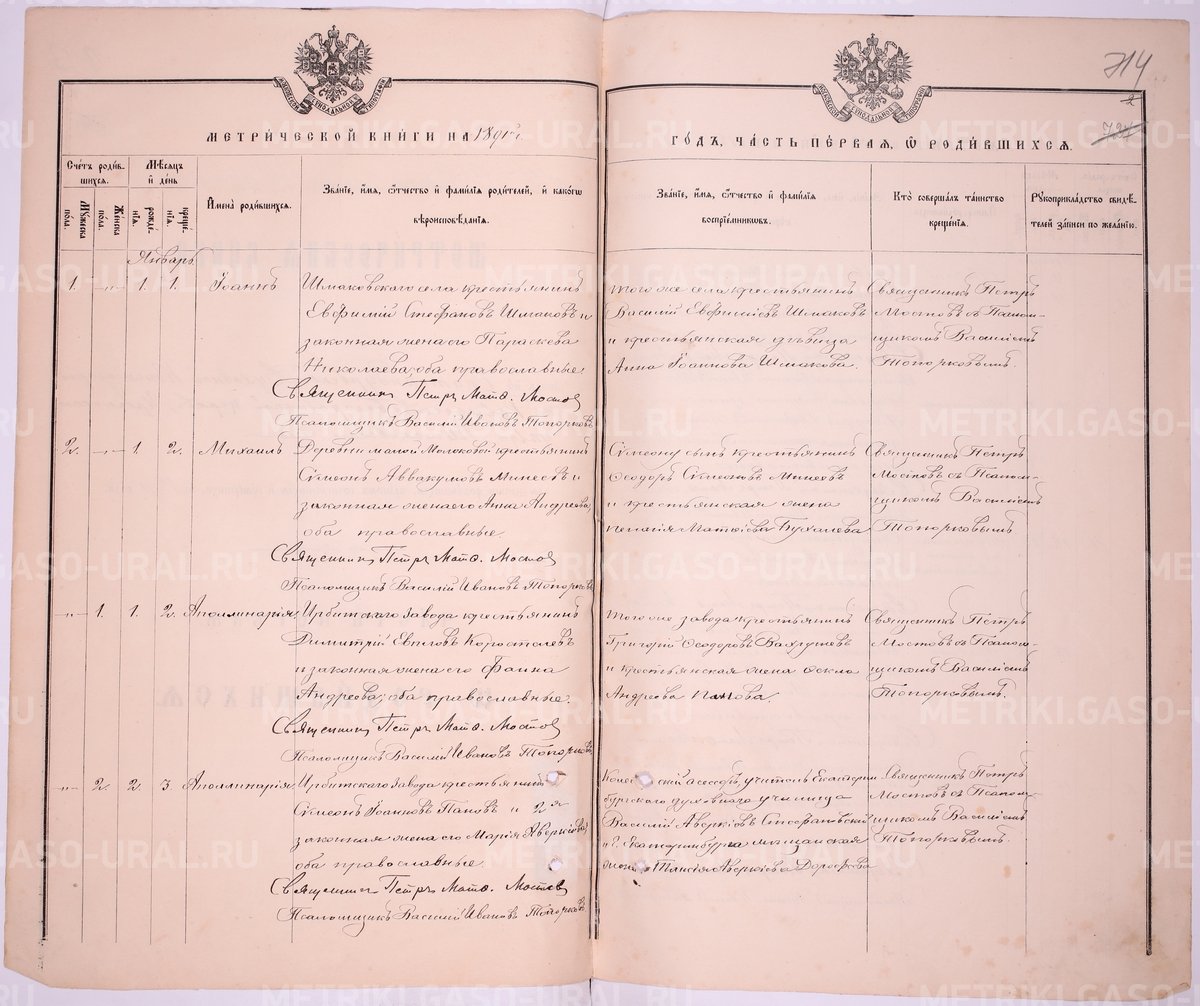 714
2
724
МЕТРИЧЕСКОЙ КНИГИ НА 1891й г.
ГОДЪ, ЧАСТЬ ПЕРВАЯ, Ѡ РОДИВШИХСЯ.
Счетъ родившихся.
Мѣсяцъ и день
Мужеска пола.
Женска пола.
рожденія.
крещенія.
Имена родившихся.
Званіе, имя, ѿчество и фамилія родителей, и какогѡ
вѣроисповѣданія.
Званіе, имя, ѿчество и фамилія
воспріемниковъ.
Кто совершалъ таинство
крещенія.
Рукоприкладство свидѣтелей записи по желанію.
Январь
1. „ 1. 1. Іоаннъ
Шмаковскаго села крестьянинъ
Евфимій Стефановъ Шмаковъ и
законная жена его Параскева
Николаева, оба православные
Священникъ Петръ Матѳ. Мостов
Псаломщикъ Василій Ивановъ Топорковъ
того же села крестьянинъ
Василій Евфиміевъ Шмаковъ
и крестьянская дѣвица
Анна Іоаннова Шмакова.
Священникъ Петръ
Мостовъ съ Псаломщикомъ Василіемъ
Топорковымъ.
2. „ 1. 2. Михаилъ
Деревни малой Молоковой крестьянинъ
Сѵмеонъ Аввакумовъ Минеевъ и
законная жена его Анна Андреева,
оба православные.
Священникъ Петръ Матѳ. Мостов
Псаломщикъ Василій Ивановъ Топорковъ
Сѵмеону сынъ крестьянинъ
Ѳеодоръ Сѵмеоновъ Минеевъ
и крестьянская жена
Матѳіева
Священникъ Петръ
Мостовъ съ Псаломщикомъ Василіемъ
Топорковымъ
„ 1. 1. 2. Аполлинарія
Ирбитскаго Завода крестьянинъ
Димитрій Евпловъ Коросталевъ
и законная жена его Фаина
Андреева, оба православные.
Священникъ Петръ Матѳ. Мостов
Псаломщикъ Василій Ивановъ Топорковъ
того же завода крестьянинъ
Григорій Ѳеодоровъ Вахрушевъ
и крестьянская жена
Андреева Панова.
Священникъ Петръ
Мостовъ съ Псаломщикомъ Василіемъ
Топорковымъ.
„ 2. 2. 3. Аполлинарія
Ирбитскаго Завода крестьянинъ
Сѵмеонъ Іоанновъ Пановъ и 2я
законная жена его Марія Аверкіева,
оба православные.
Священникъ Петръ Матѳ. Мостов
Псаломщикъ Василій Ивановъ Топорковъ
асессоръ, учитель Екатеринбургскаго духовнаго училища
Василій Аверкіевъ Стефановскій
и г. Екатеринбурга мѣщанская
жена Таисія Аверкіева Дорофеева
Священникъ Петръ
Мостовъ съ Псаломщикомъ Василіемъ
Топорковымъ.
METRIKI.GASO-URAL.RU